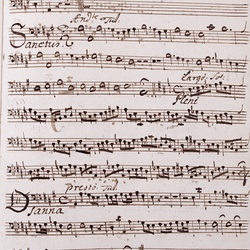 And.te Sub.
Sanctus.
largo Sol.
Pleni
presto Sub.
Osanna